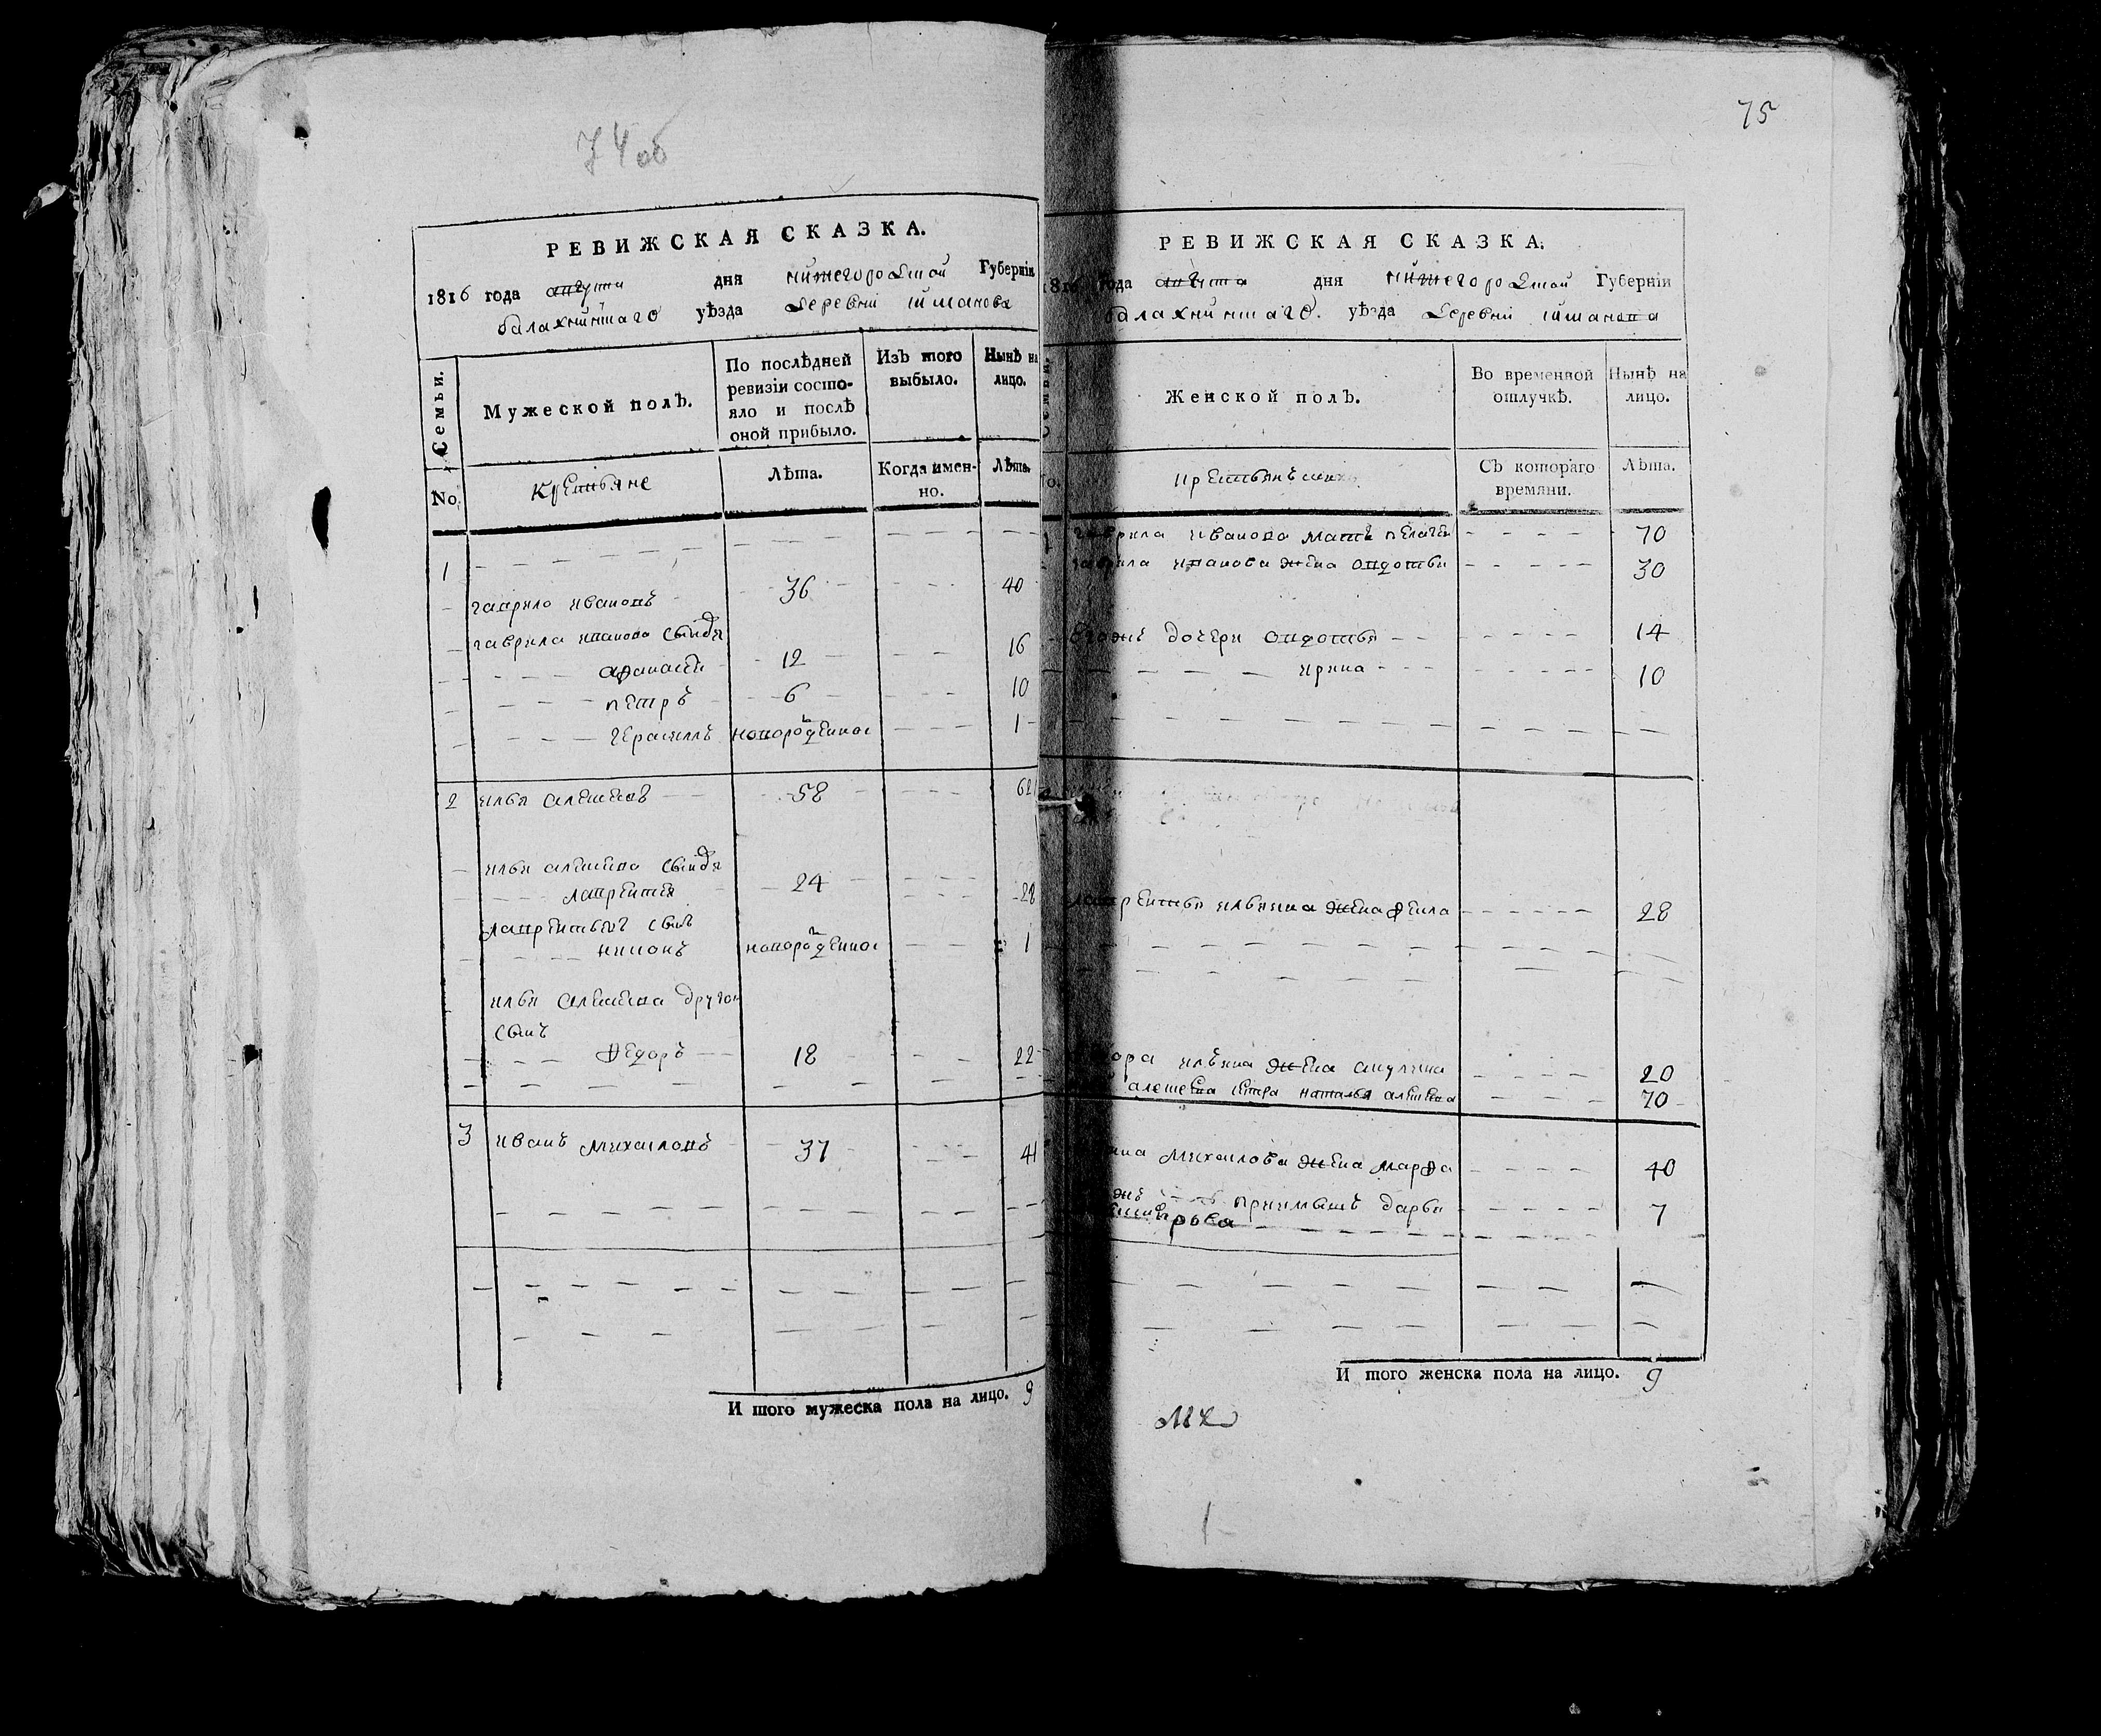 74 об
РЕВИЖСКАЯ СКАЗКА.
1816 года августа дня нижегородской Губерніи
балахнинскаго уѣзда деревни
Семьи. Мужеской полъ. По послѣдней ревизіи состо-яло и послѣ оной прибыло. Изъ того выбыло. Нынѣ на лицо.
No. крестьяне Лѣта. Когда имен-но. Лѣта.
1
гаврило ивановъ 36 40
гаврила иванова сынова
афанасей 12 16
петръ 6 10
герасимъ новорожденной 1
2 илья алексеевъ 58 62
илья алексеева сынова
лаврентей 24 28
лаврентьевъ сынъ
новорожденной 1
илья алексеева другой
сынъ
Федоръ 18 22
3 иванъ михаиловъ 37 41
И того мужеска пола на лицо. 9
75
РЕВИЖСКАЯ СКАЗКА.
1816 года августа дня нижегородской Губерніи
балахнинскаго. уѣзда деревни
Женской полъ. Во временной отлучкѣ. Нынѣ на лицо.
No. Съ котораго времяни. Лѣта.
гаврила иванова мать пелагея 70
гаврила иванова жена овдотья 30
дочери овдотья 14
ирина 10
лаврентья ильина жена 28
ильина жена акулина 20
алексеева сестра наталья алексеева 70
михаилова жена марфа 40
приимышъ дарья 7
И того женска пола на лицо. 9